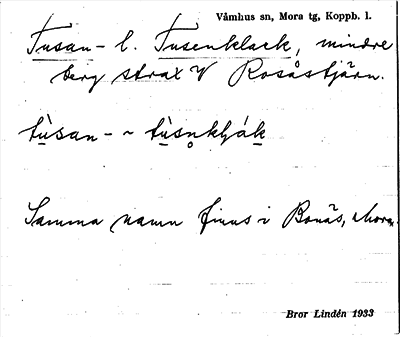 Våmhus sn, Mora tg, Koppb. l.
Tusan- l. Tusenklack, mindre
berg strax V Rosåstjärn.
tùsan- ~ tùsn̥kḷák
Samma namn finns i Bonäs, Mora.
Bror Lindén 1933